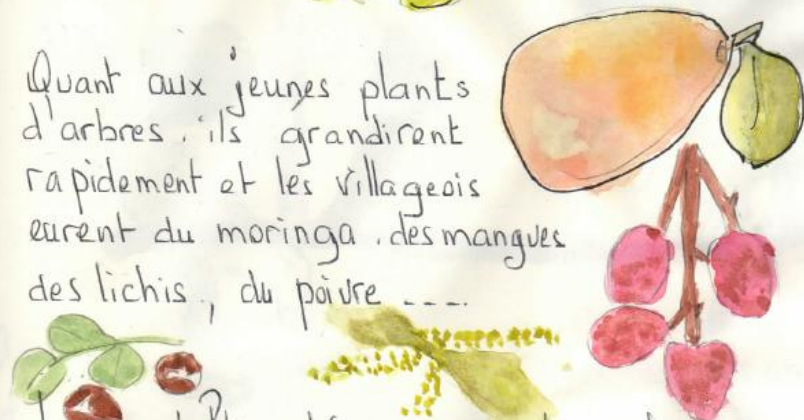 Quant aux jeunes plants
d'arbres, ils grandirent
rapidement et les villageois
eurent du moringa, des mangues
des lichis, du poivre ----.